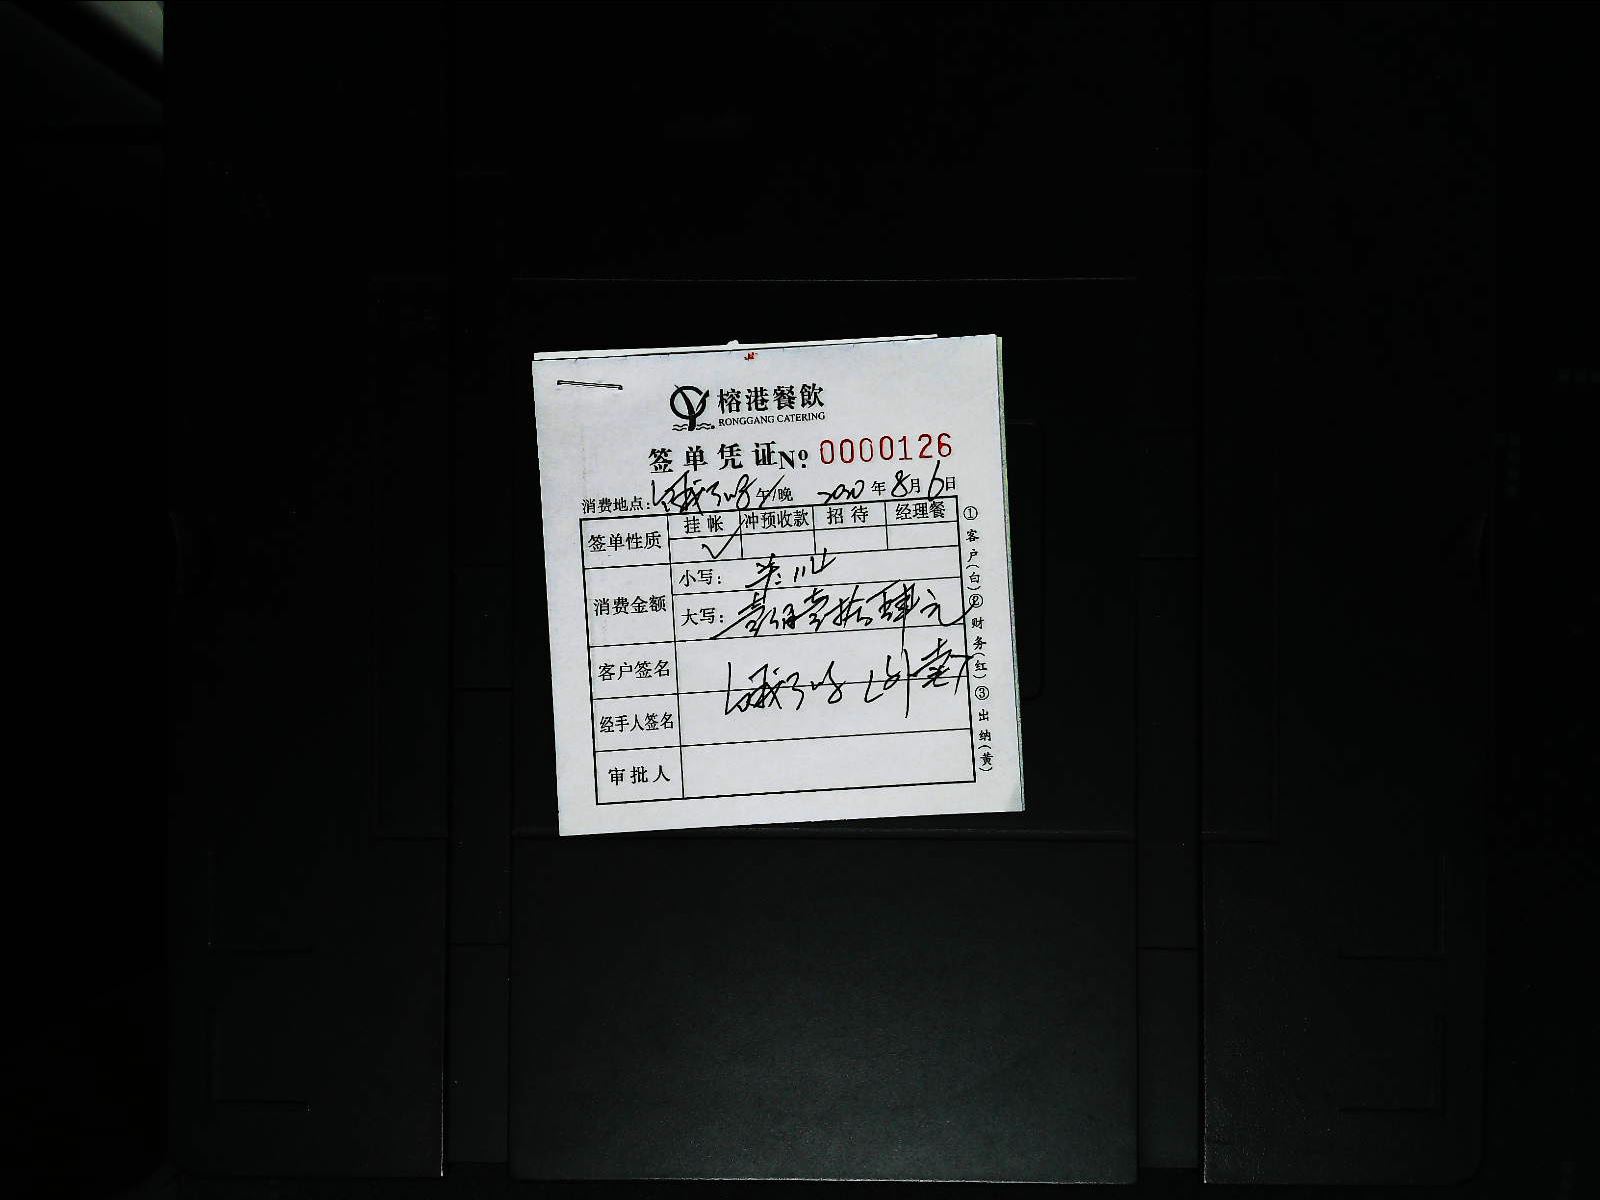 榕港餐飲
RONGGANG CATERING
签单凭证No. 0000126
消费地点：饿了吗 午/晚 2020年8月6日
签单性质 挂帐 冲预收款 招待 经理餐
✓
消费金额 小写： 114
大写：壹佰壹拾肆元
客户签名 饿了吗
经手人签名
审批人
①客户(白)②财务(红)③出纳(黄)